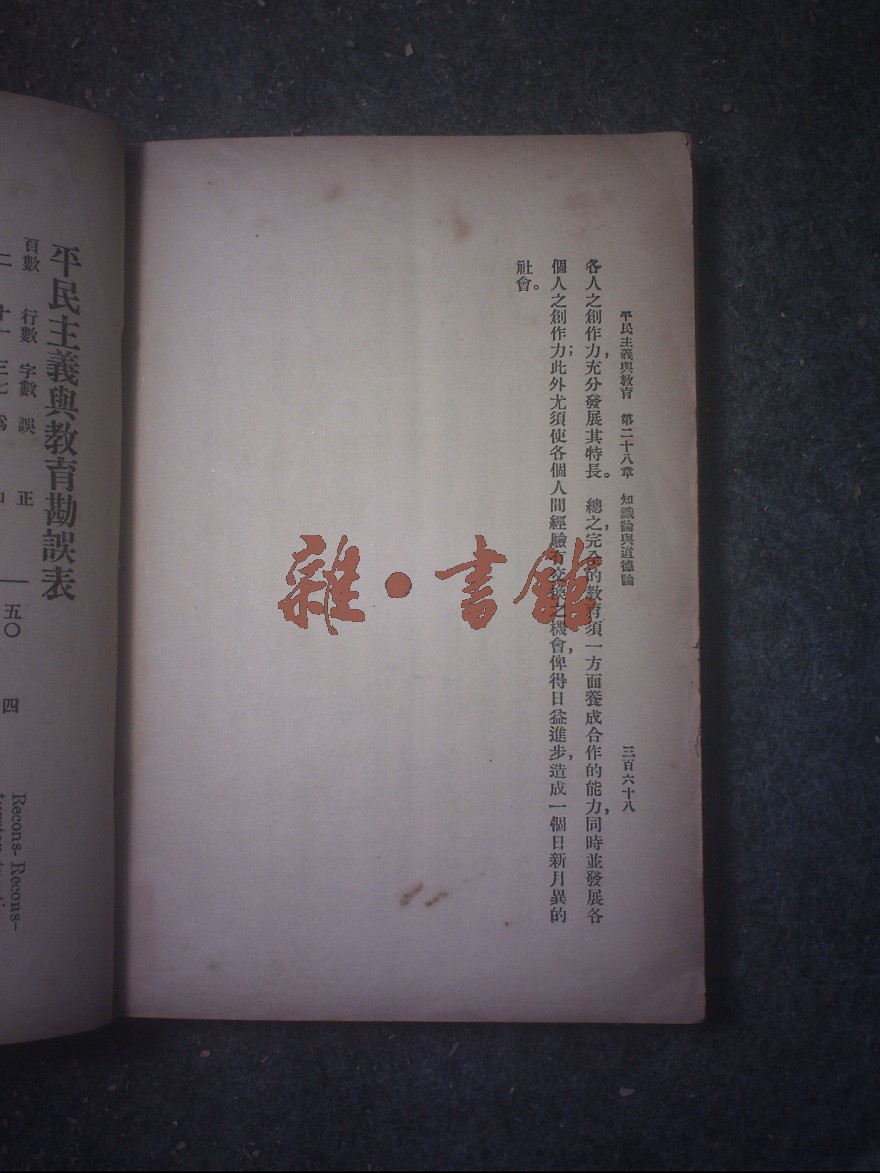 平民主義與教育 第二十八章 知識論與道德論 三百六十八
各人之創作力，充分發展其特長。總之，完全的教育須一方面養成合作的能力，同時並發展各
個人之創作力；此外尤須使各個人間經驗有交換之機會，俾得日益進步，造成一個日新月異的
社會。
雜·書館
平民主義與教育勘誤表
頁數 行數 字數 誤 正
二 十一 三七
五〇 四
Recons- Recons-